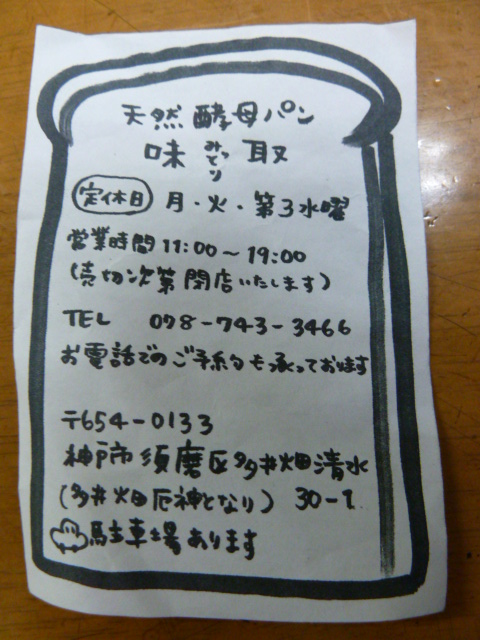 天然酵母パン
味取
みっとり
定休日 月・火・第3水曜
営業時間 11:00～19:00
(売切次第閉店いたします)
TEL 078-743-3466
お電話でのご予約も承っております
〒654-0133
神戸市須磨区多井畑清水
(多井畑厄神となり) 30-1
駐車場あります